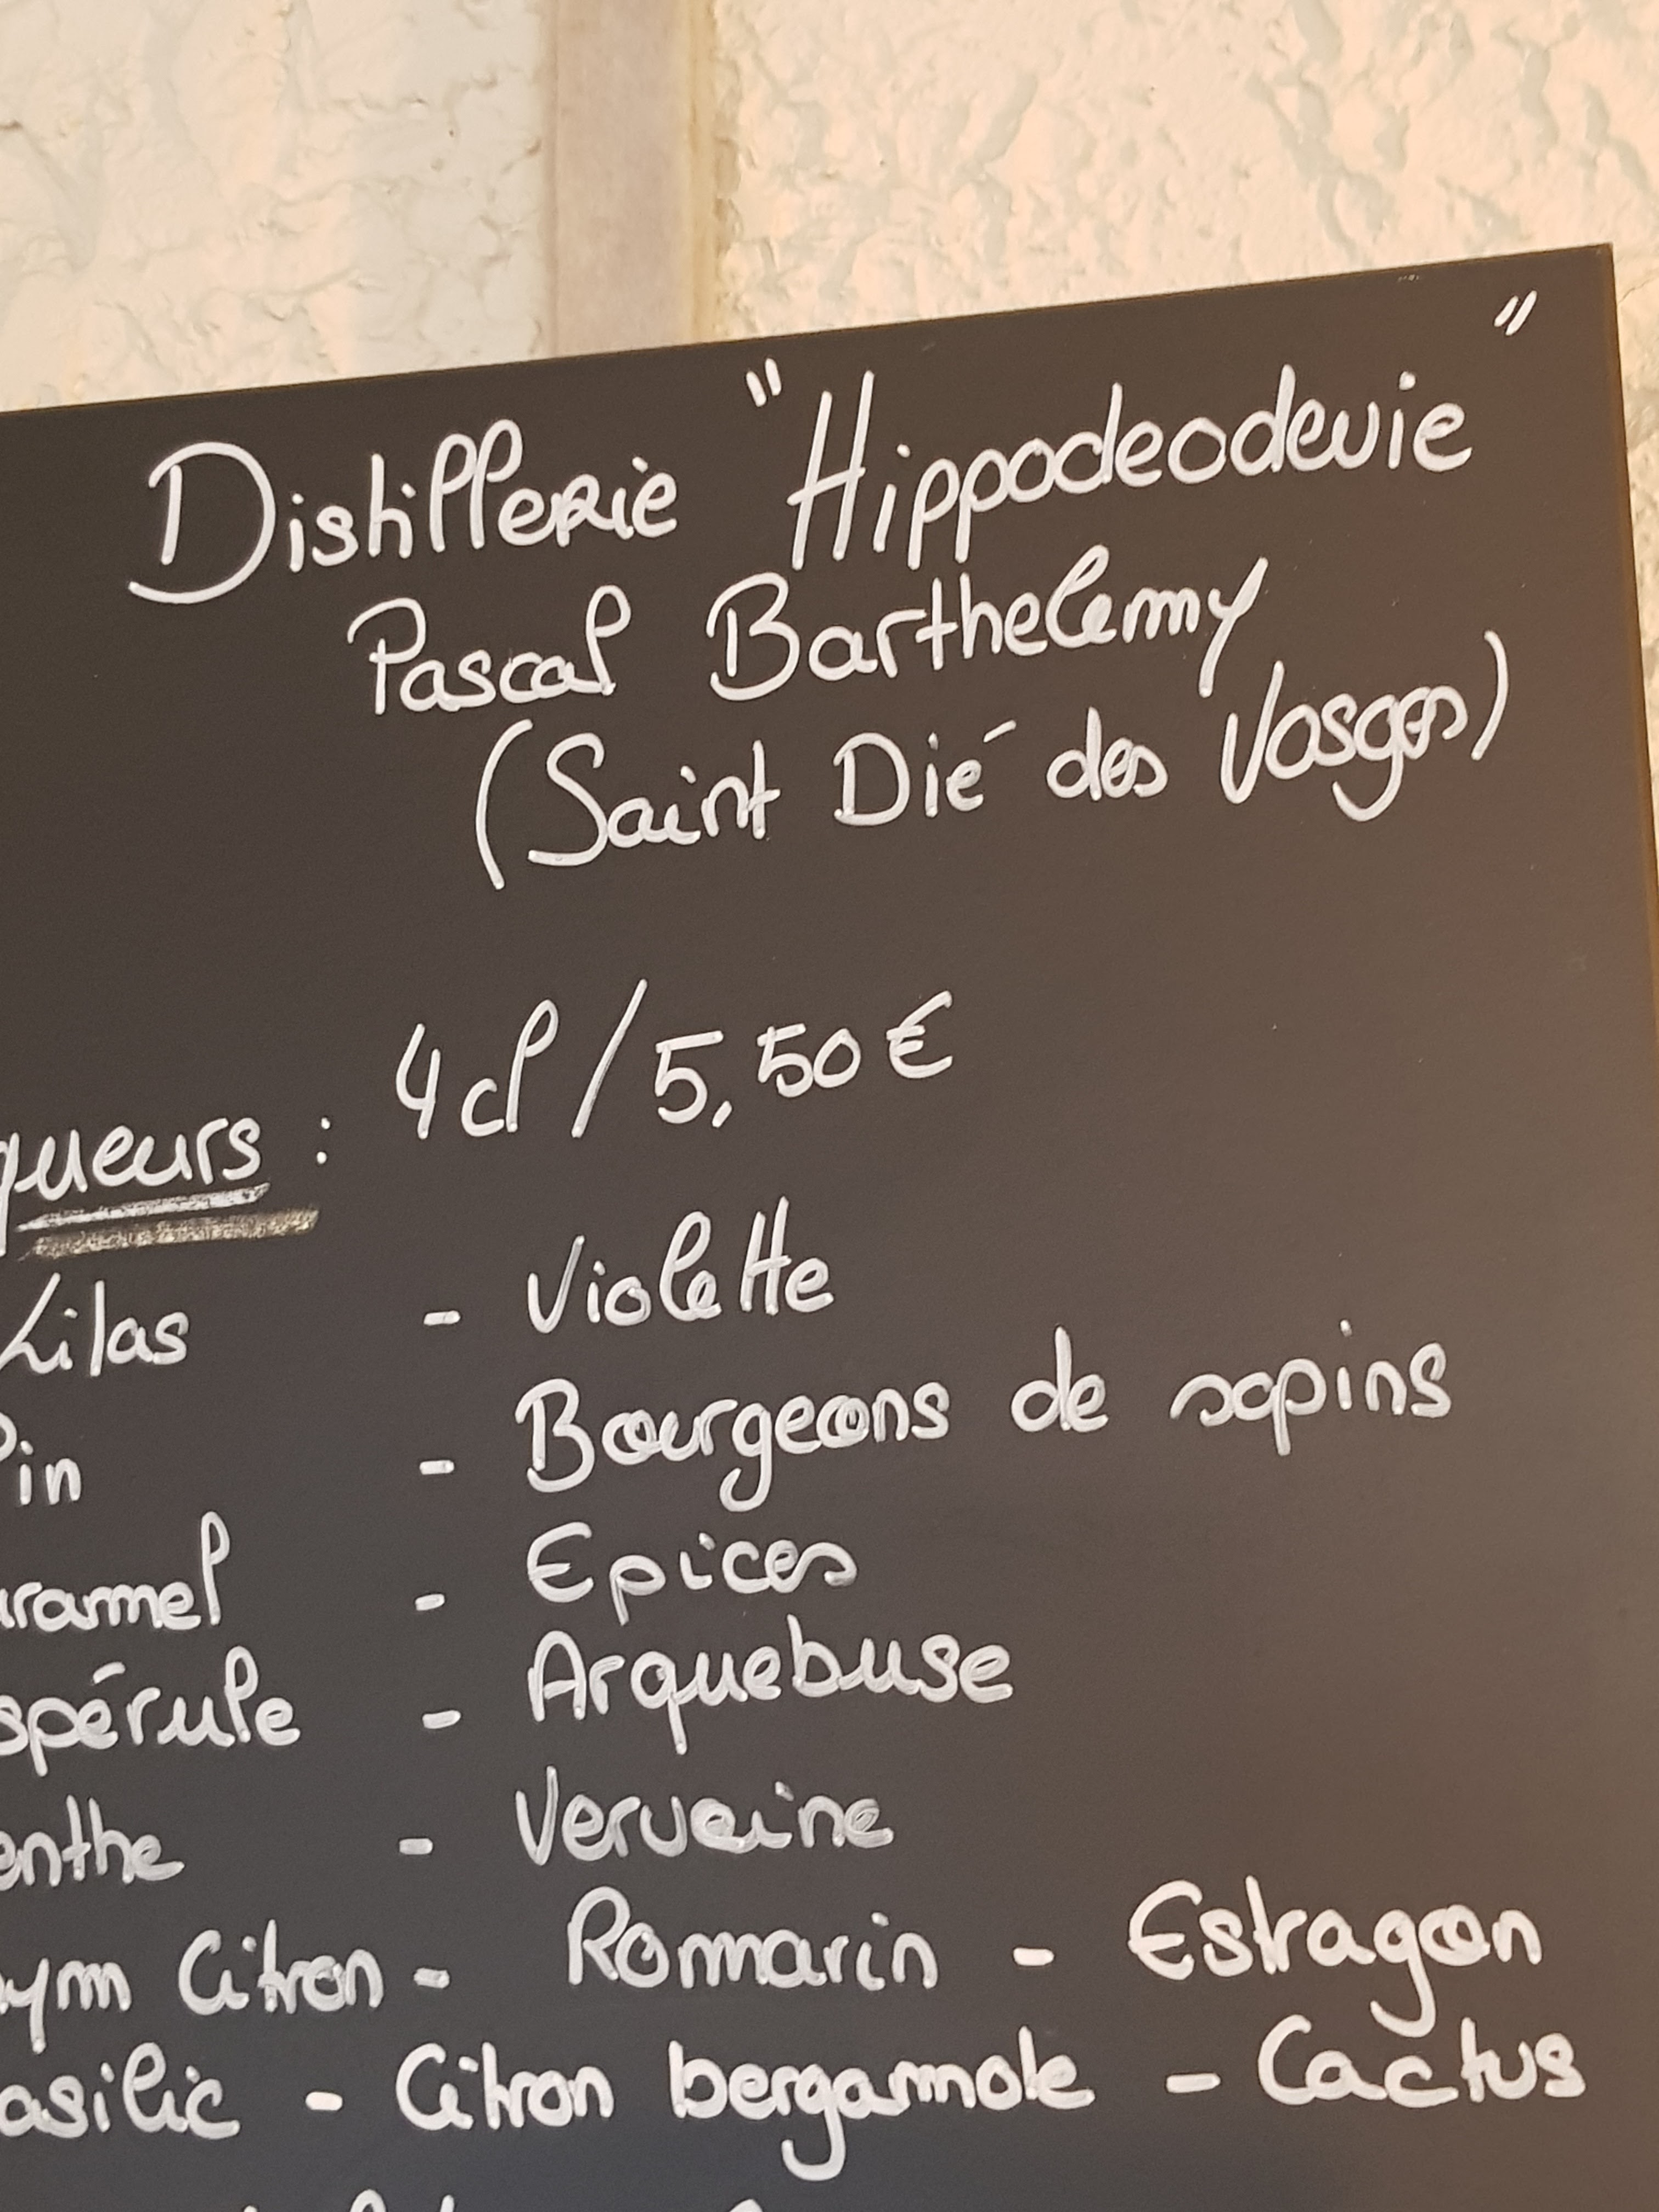 Distillerie "Hippodeodevie"
Pascal Barthelemy
(Saint Dié des Vosges)
queurs : 4cl / 5,50€
Lilas - Violette
Pin - Bourgeons de sapins
aramel - Epices
spérule - Arquebuse
enthe - Verveine
ym Citron - Romarin - Estragon
asilic - Citron bergamote - Cactus